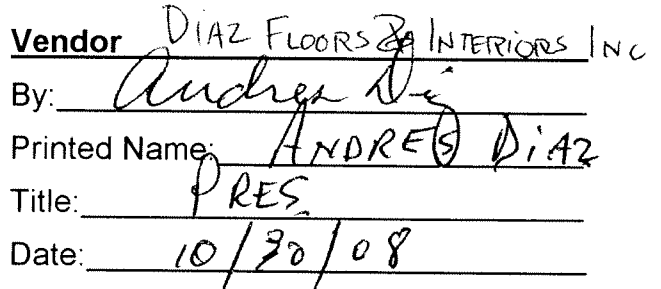 Vendor DIAZ FLOORS & INTERIORS INC
By: Andres Di
Printed Name: ANDRES DIAZ
Title: PRES.
Date: 10/30/08